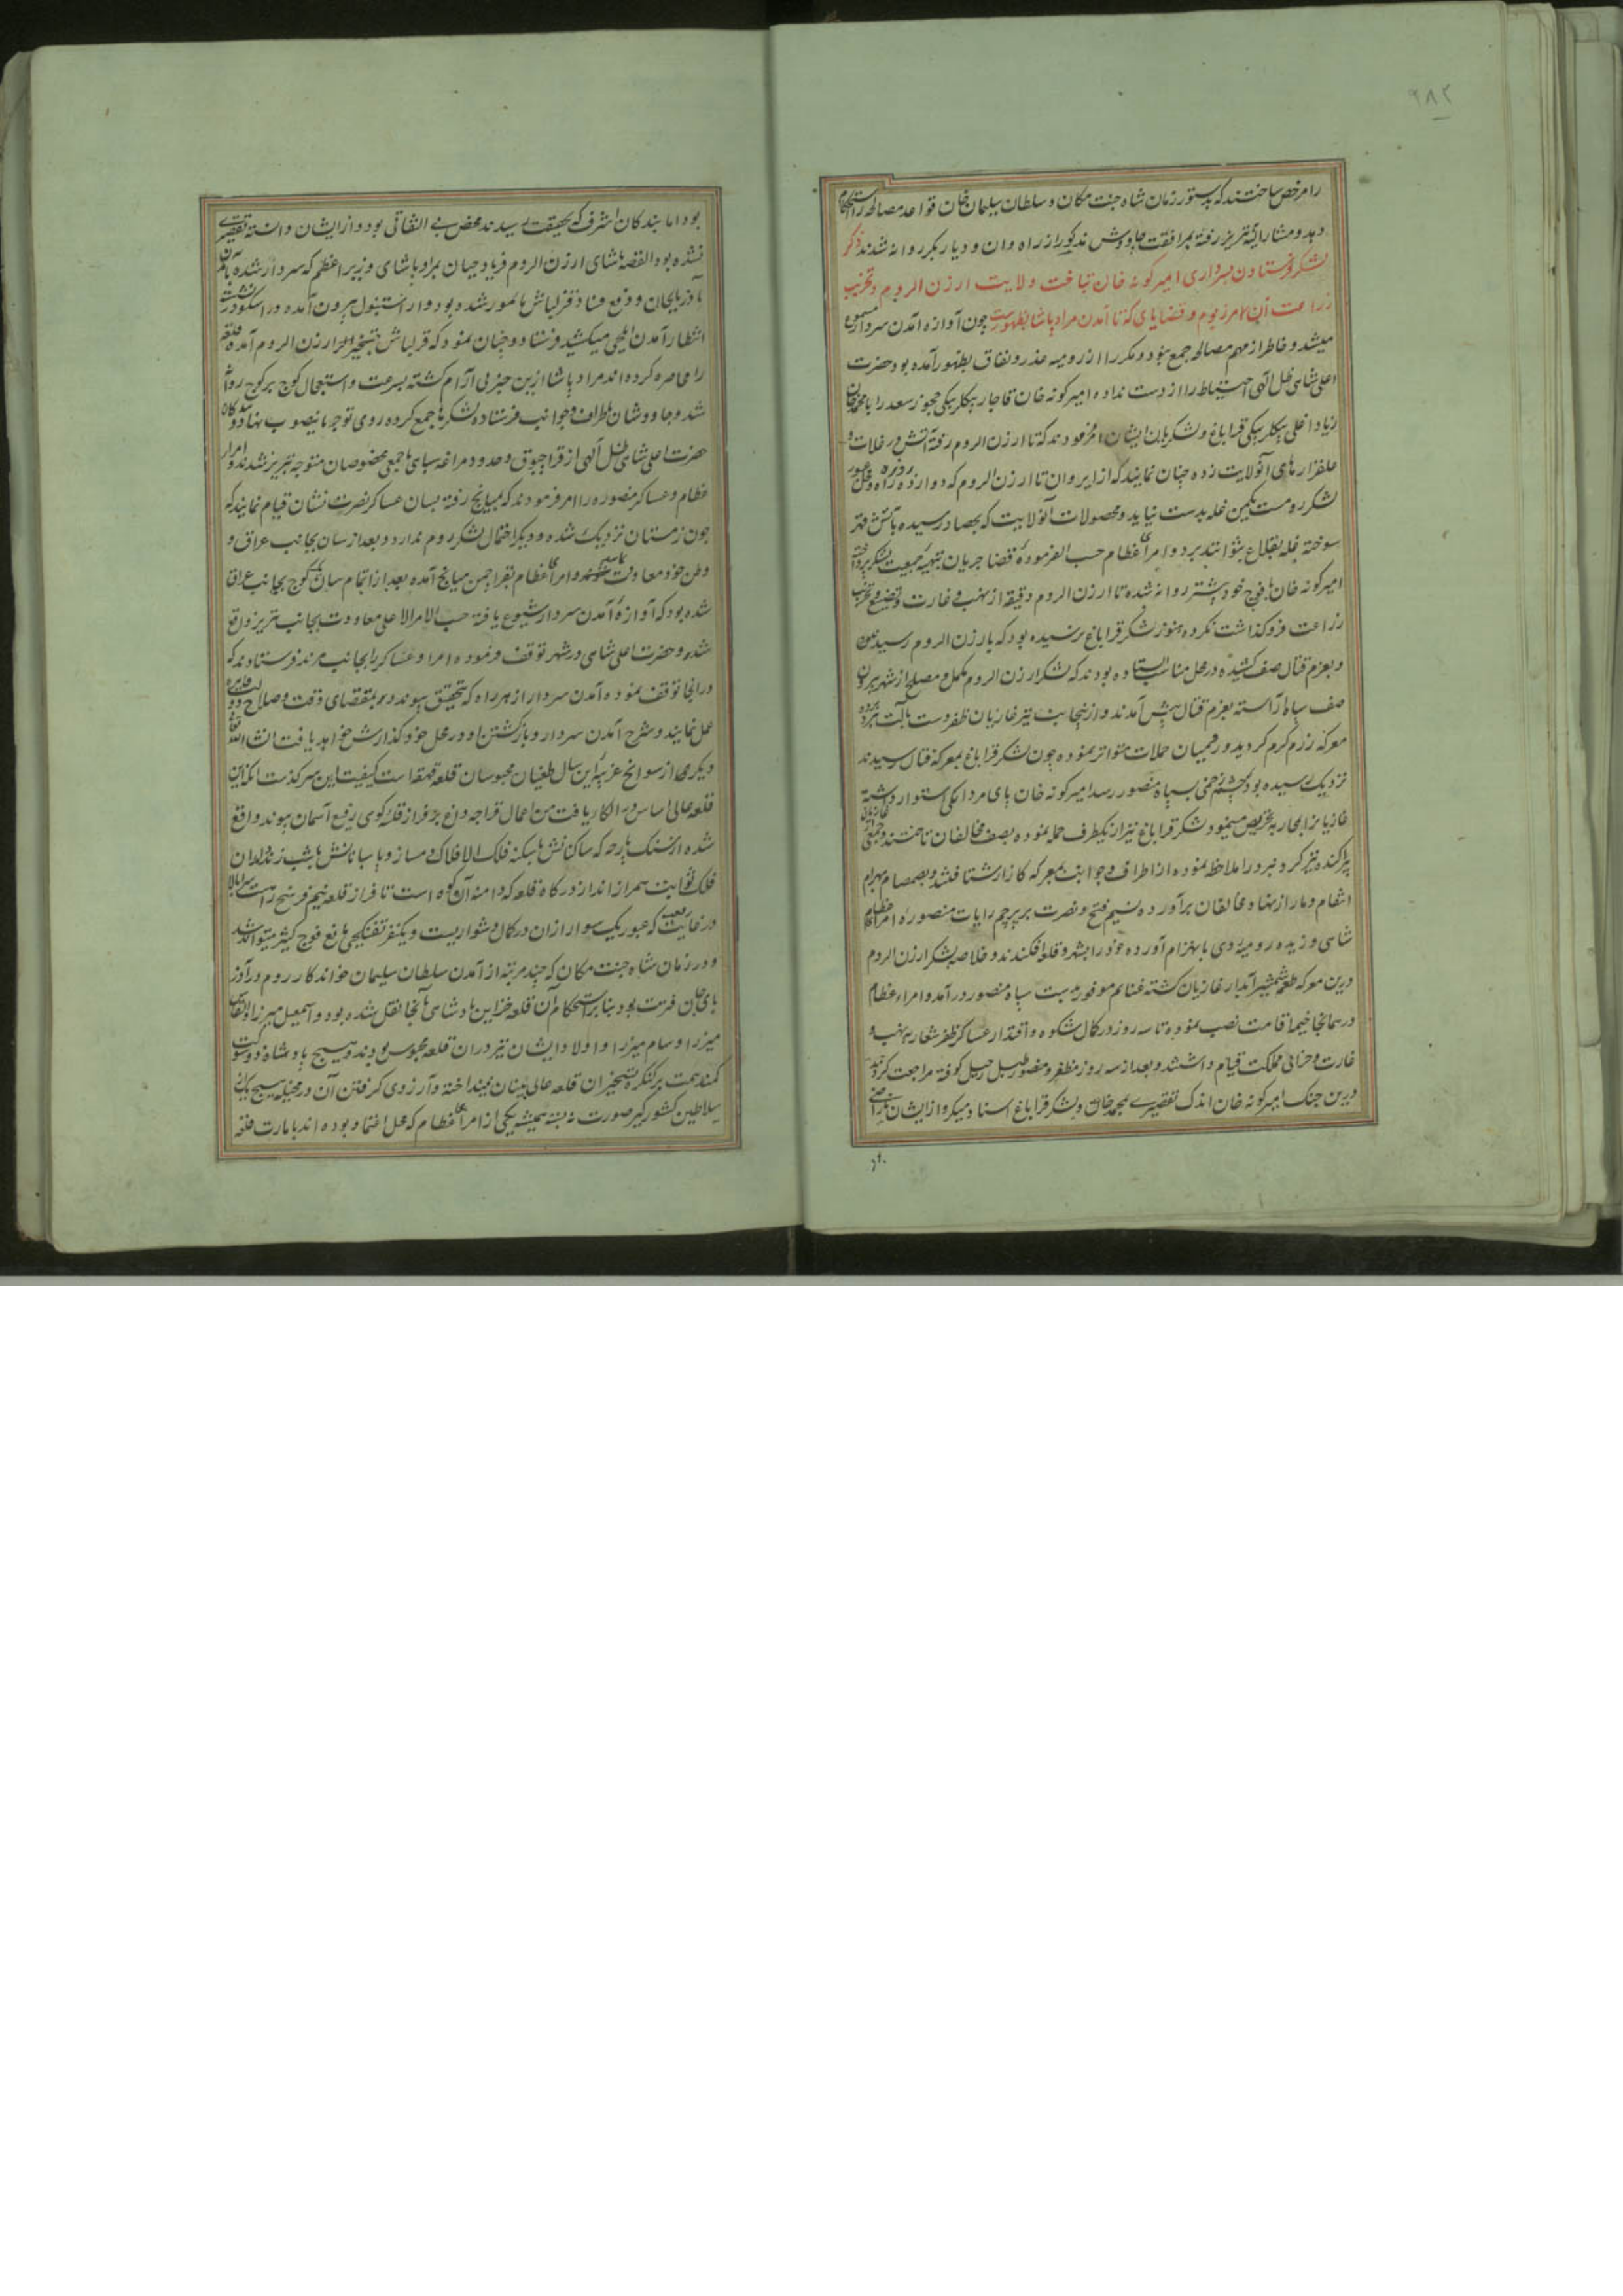 ۲۸۲
را مرخص ساختند که بدستور زمان شاه جنت مکان و سلطان سلیمان خان قواعد مصالحه را استحکام
دهد و مشارالیه تبریز رفته بمرافقت چاوش مذکور از راه وان و دیار بکر روانه شدند ذکر
لشکر فرستادن بسرداری امیر کونه خان بتاخت ولایت ارزن الروم و تخریب
زراعت آن مرز بوم و قضایای که تا آمدن مراد پاشا بظهور پیوست چون آوازه آمدن سردار مسموع
میشد و خاطر از مهم مصالحه جمع نبود و مکرر از رومیه غدر و نفاق بظهور آمده بود حضرت
اعلی شاهی ظل الهی احتیاط را از دست نداده امیر کونه خان قاجار بیکلربیکی چخور سعد را با محمد خان
زیاد اغلی بیکلربیکی قراباغ و لشکریان ایشان امر فرمودند که تا ارزن الروم رفته آتش در غلات و
علفزارهای آنولایت زده چنان نمایند که از ایروان تا ارزن الروم که دوازده روزه راه و محل عبور
لشکر روم است یکمن غله بدست نیاید و محصولات آنولایت که بحصاد رسیده بآتش قهر
سوخته غله بقلاع نتوانند برد و امرای عظام حسب الفرموده قضا جریان بتهیه جمعیت لشکر پرداخته
امیر کونه خان با فوج خود پیشتر روانه شده تا ارزن الروم دقیقه از نهب و غارت و تضییع و تخریب
زراعت فروکذاشت نکرده هنوز لشکر قراباغ نرسیده بود که بارزن الروم رسید
و بعزم قتال صف کشیده در محل مناسب ایستاده بودند که لشکر ارزن الروم مکمل و مسلح از شهر بیرون
صف سپاه آراسته بعزم قتال پیش آمدند و از اینجانب نیز غازیان ظفر دست بآلت نبرد
معرکه رزم کرم کردید و رومیان حملات متواتر نموده چون لشکر قراباغ بمعرکه قتال نرسیدند
نزدیک رسیده بود که چشم زخمی بسپاه منصور رسد امیر کونه خان پای مردانکی استوار داشته
غازیانرا بمحاربه تحریض مینمود لشکر قراباغ نیز از یکطرف حمله نموده بصف مخالفان تاختند و جمعی
پراکنده نیز کر و فر در املاحظه نموده از اطراف و جوانب بمعرکه کارزار شتافتند و بصمصام بهرام
انتقام دمار از نهاد مخالفان برآورده نسیم فتح و نصرت بر پرچم رایات منصوره امرای عظام
شاهی وزیده رومیه روی بانهزام آورده خود را بشهر و قلعه افکندند و خلاصه لشکر ارزن الروم
درین معرکه طعمه شمشیر آبدار غازیان کشته غنایم موفور بدست سپاه منصور درآمد و امراء عظام
در همانجا خیمه اقامت نصب نموده تا سه روز در کمال شکوه و اقتدار عساکر ظفر شعار به نهب و
غارت و خرابی مملکت قیام داشتند و بعد از سه روز مظفر و منصور طبل رحیل کوفته مراجعت کردند
درین جنک امیر کونه خان اندک تقصیری بمحمد خان و لشکر قراباغ اسناد میکرد و از ایشان ناراضی
بود اما بندکان اشرف که بحقیقت رسیدند محض بی التفاقی بود و از ایشان دانسته تقصیری
نشده بود القصه پاشای ارزن الروم فریادچیان بمراد پاشای وزیر اعظم که سردار شده بآمدن
آذربایجان و دفع فساد قزلباش مامور شده بود و از استنبول بیرون آمده در اسکودر نشست
انتظار آمدن ایلچی میکشید فرستاد و چنان نمود که قزلباش بتسخیر ارزن الروم آمده قلعه
را محاصره کرده اند مراد پاشا ازین خبر بی آرام کشته بسرعت و استعجال کوچ بر کوچ روانه
شد و چاووشان باطراف و جوانب فرستاده لشکرها جمع کرده روی توجه باینصوب نهاد و بندکان
حضرت اعلی شاهی ظل الهی از قراچبوق و حدود مراغه سبای با جمعی مخصوصان متوجه تبریز شدند و امراء
عظام و عساکر منصوره را امر فرمودند که بمیانج رفته بسان عساکر نصرت نشان قیام نمایند که
چون زمستان نزدیک شده و دیکر احتمال لشکر روم ندارد و بعد از سان بجانب عراق و
وطن خود معاودت نمایند و امرای عظام بقراچمن میانج آمده بعد از اتمام سان کوچ بجانب عراق
شده بود که آوازه آمدن سردار شیوع یافته حسب الامر الاعلی معاودت بجانب تبریز واقع
شده و حضرت اعلی شاهی در شهر توقف فرموده امرا و عساکر را بجانب مرند فرستادند که
در آنجا توقف نموده آمدن سردار از هر راه که بتحقیق پیوندد بمقتضای وقت و صلاح دولت قاهره
عمل نمایند و شرح آمدن سردار و بازکشتن او در محل خود کذارش خواهد یافت انشاء الله تعالی
دیکری از سوانح غریبه این سال طغیان محبوسان قلعه قهقهه است کیفیت این سرکذشت آنکه این
قلعه عالی اساس در الکاء یافت من اعمال قراجه داغ بر فراز قله کوهی رفیع آسمان پیوند واقع
شده از سنک پارچه که ساکنانش با سکنه فلک الافلاک دمساز و پاسبانانش با شب زنده داران
فلک ثوابت همراز اند از درکاه قلعه که دامنه آن کوه است تا فراز قلعه نیم فرسخ راهست سربالا
در غایت صعب که عبور یک سوار از آن در کمال دشواریست و یکنفر تفنکچی مانع فوج کثیر میتواند شد
و در زمان شاه جنت مکان که چند مرتبه از آمدن سلطان سلیمان خواندکار روم در آذر
بایجان فترت بود بنا بر استحکام آن قلعه خزاین پادشاهی بآنجا نقل شده بود و اسمعیل میرزا و القاس
میرزا و سام میرزا و اولاد ایشان نیز در آن قلعه محبوس بودند و هیچ پادشاه ذو شوکت
کمند همت بر کنکره تسخیر آن قلعه عالی بنیان نینداخته و آرزوی کرفتن آن در مخیله هیچ یک از
سلاطین کشورکیر صورت نه بسته همیشه یکی از امرای عظام که محل اعتماد بوده اند بامارت قلعه